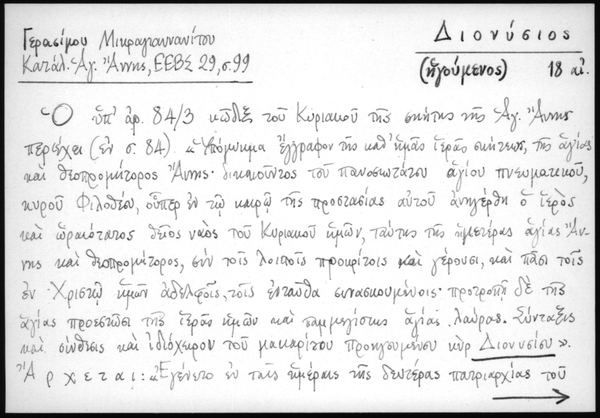 Γερασίμου Μικραγιαννανίτου
Κατάλ. Ἁγ. Ἄννης, ΕΕΒΣ 29, σ. 99
Διονύσιος
(ἡγούμενος) 18 αἰ.
Ὁ ὑπ' ἀρ. 84/3 κῶδιξ τοῦ Κυριακοῦ τῆς σκήτης τῆς Ἁγ. Ἄννης
περιέχει (ἐν σ. 84) «Ὑπόμνημα ἔγγραφον τῆς καθ' ἡμᾶς ἱερᾶς σκήτεως, τῆς ἁγίας
καὶ θεοπρομήτορος Ἄννης· δικαιοῦντος τοῦ πανοσιωτάτου ἁγίου πνευματικοῦ,
κυροῦ Φιλοθέου, οὗπερ ἐν τῷ καιρῷ τῆς προστασίας αὐτοῦ ἀνηγέρθη ὁ ἱερὸς
καὶ ὡραιότατος θεῖος ναὸς τοῦ Κυριακοῦ ἡμῶν, ταύτης τῆς ἡμετέρας ἁγίας Ἄν-
νης καὶ θεοπρομήτορος, σὺν τοῖς λοιποῖς προκρίτοις καὶ γέρουσι, καὶ πᾶσι τοῖς
ἐν Χριστῷ ἡμῶν ἀδελφοῖς, τοῖς ἐνταῦθα συνασκουμένοις· προτροπῇ δὲ τῆς
ἁγίας προεστῶσι τῆς ἱερᾶς ἡμῶν καὶ παμμεγίστης ἁγίας λαύρας. Σύνταξις
καὶ σύνθεσις καὶ ἰδιόχειρον τοῦ μακαρίτου προηγουμένου κὺρ Διονυσίου».
Ἄρχεται: «Ἐγένετο ἐν ταῖς ἡμέραις τῆς δευτέρας πατριαρχίας τοῦ